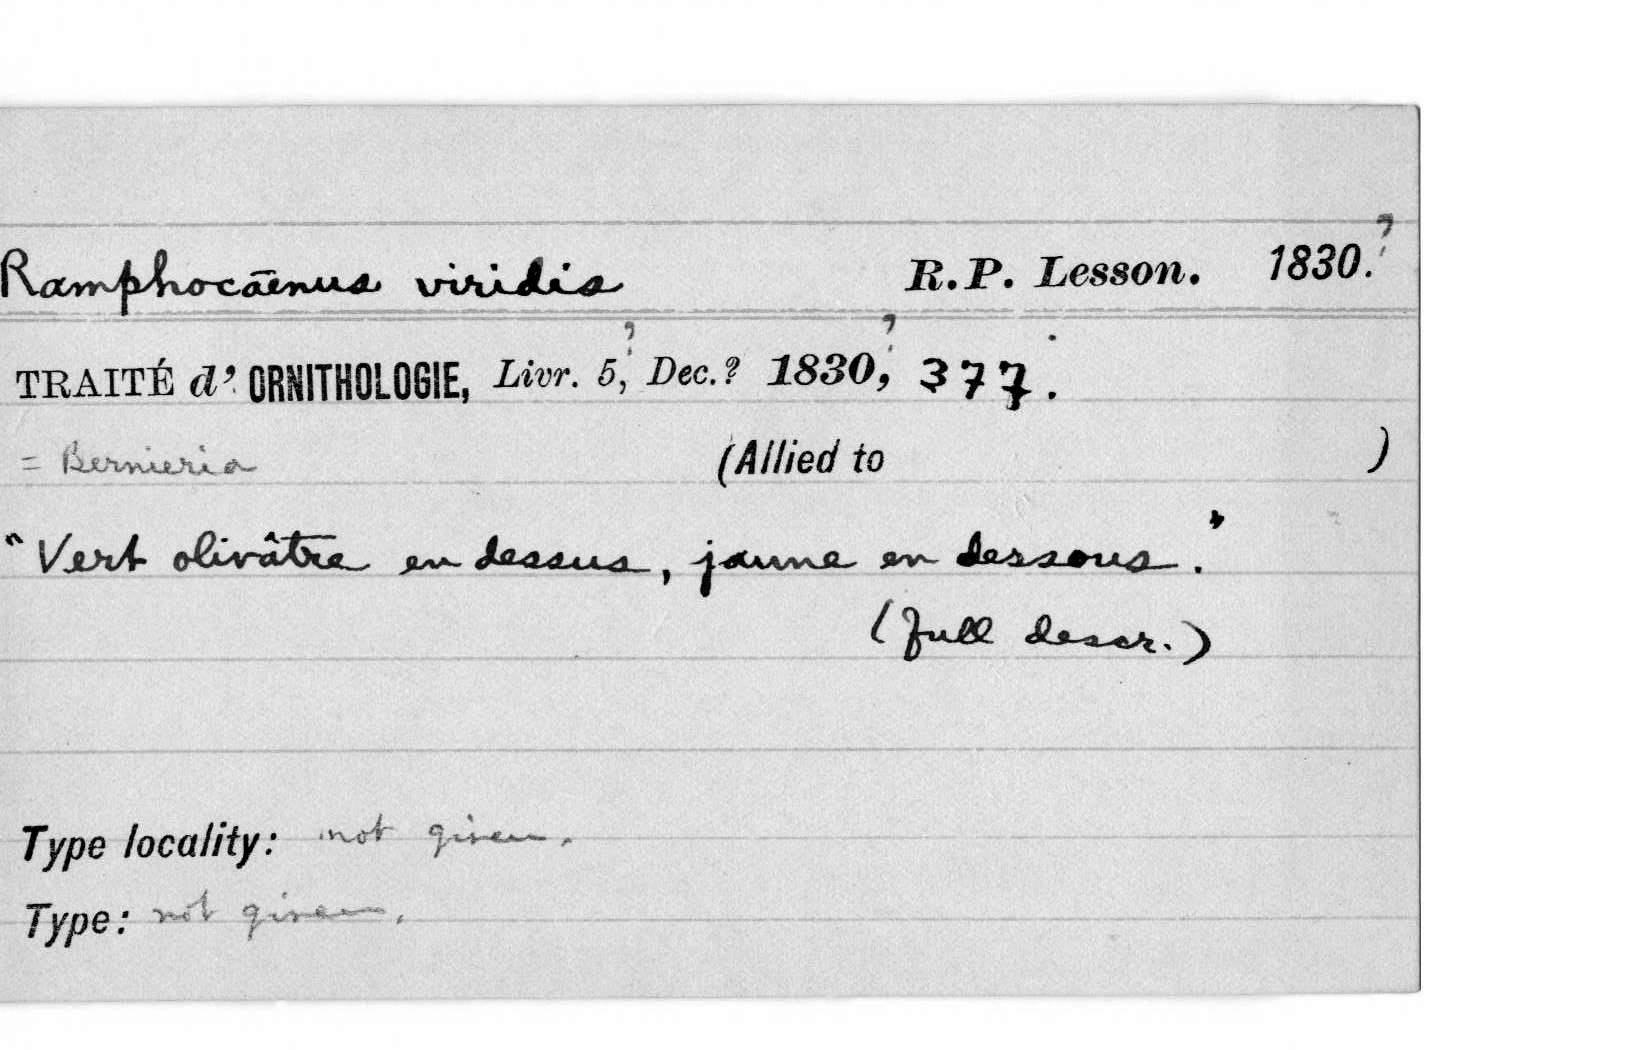 Ramphocænus viridis R.P. Lesson. 1830.?
TRAITÉ d'ORNITHOLOGIE, Livr. 5,? Dec.? 1830,? 377.
= Bernieria (Allied to )
"Vert olivâtre en dessus, jaune en dessous."
(full descr.)
Type locality: not given.
Type: not given.